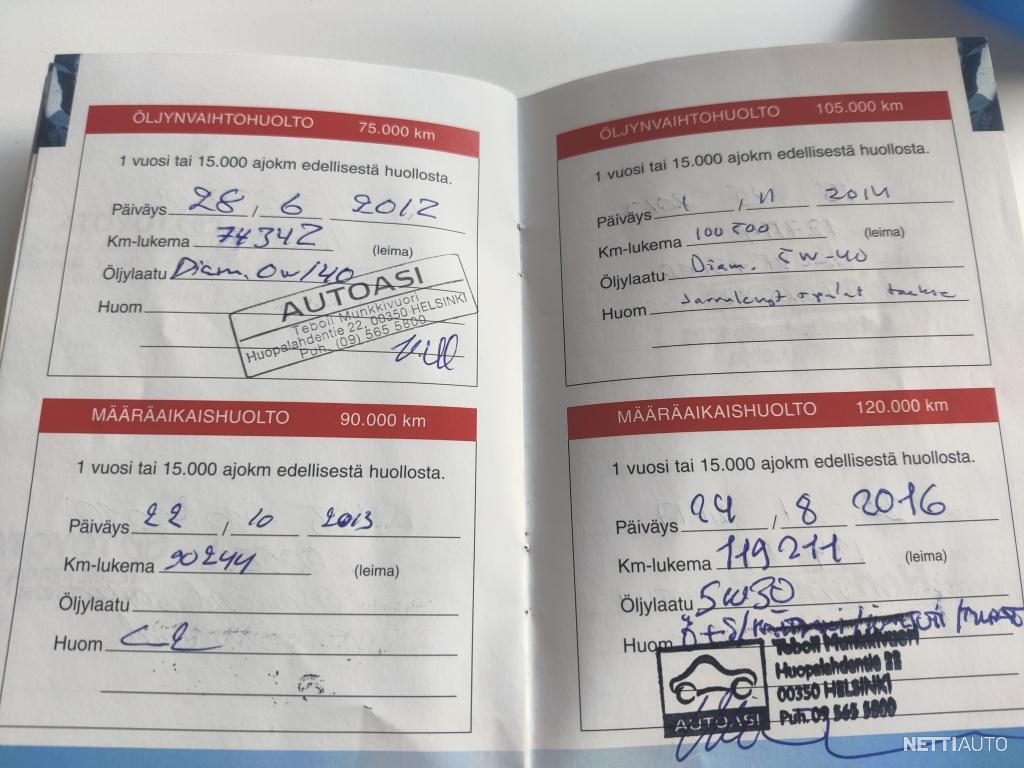 ÖLJYNVAIHTOHUOLTO 75.000 km
1 vuosi tai 15.000 ajokm edellisestä huollosta.
Päiväys 28 / 6 2012
Km-lukema 74342 (leima)
Öljylaatu Diam. 0w/40
Huom
AUTOASI
Teboil Munkkivuori
Huopalahdentie 22, 00350 HELSINKI
Puh. (09) 565 5800
MÄÄRÄAIKAISHUOLTO 90.000 km
1 vuosi tai 15.000 ajokm edellisestä huollosta.
Päiväys 22 / 10 2013
Km-lukema 90244 (leima)
Öljylaatu
Huom
ÖLJYNVAIHTOHUOLTO 105.000 km
1 vuosi tai 15.000 ajokm edellisestä huollosta.
Päiväys / 11 2014
Km-lukema 100500 (leima)
Öljylaatu Diam. 5W-40
Huom
MÄÄRÄAIKAISHUOLTO 120.000 km
1 vuosi tai 15.000 ajokm edellisestä huollosta.
Päiväys 24 / 8 2016
Km-lukema 119211 (leima)
Öljylaatu 5w30
Huom Ö+S/
Teboil Munkkivuori
Huopalahdentie 22
00350 HELSINKI
Puh. 09 565 5800
AUTOASI
NETTIAUTO